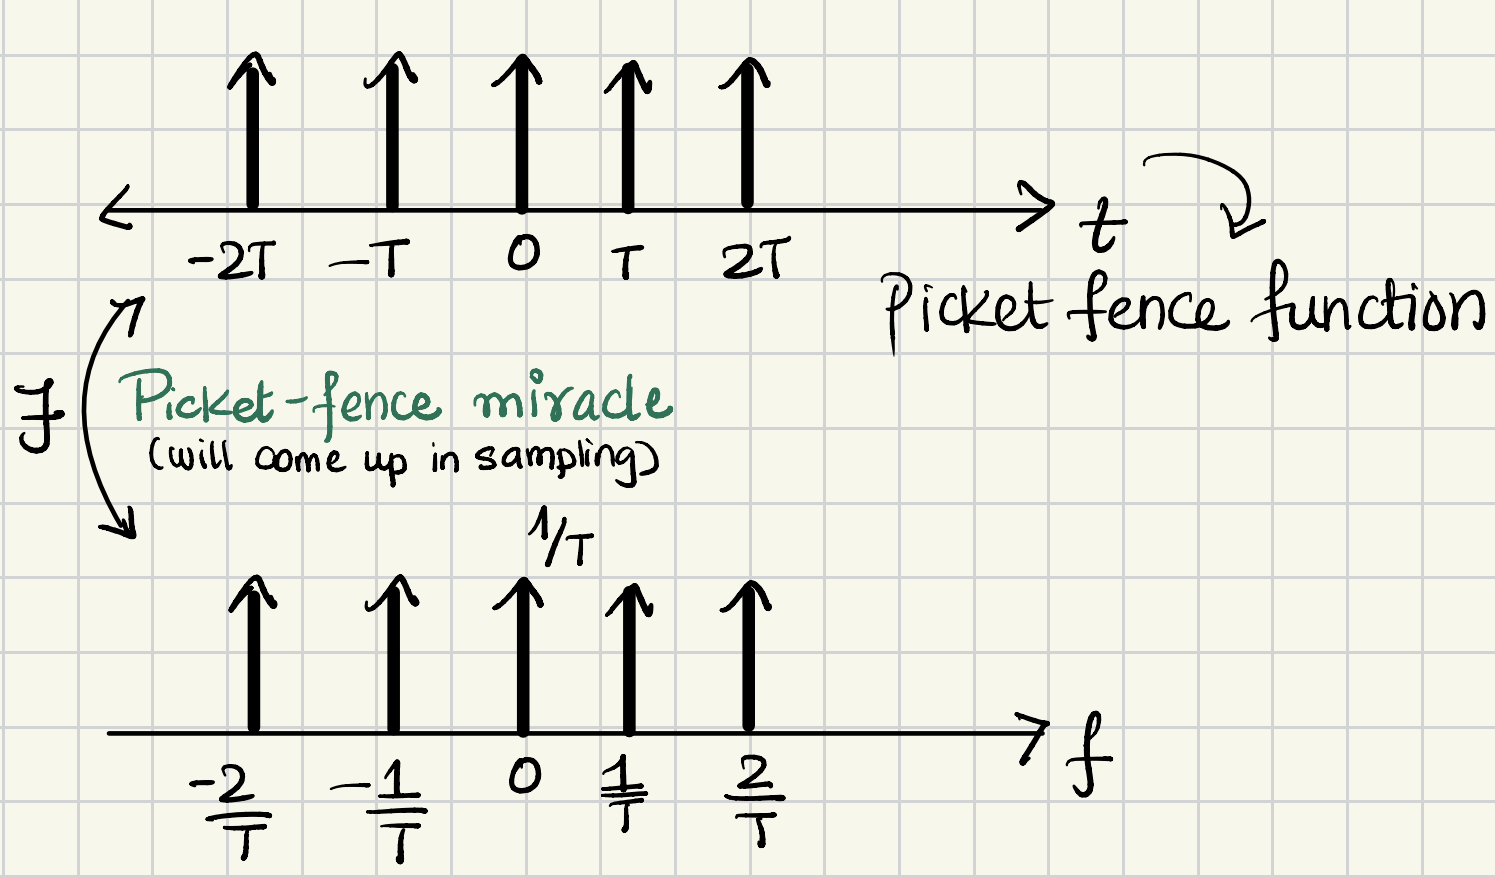 -2T -T 0 T 2T t
Picket fence function
F
Picket-fence miracle
(will come up in sampling)
1/T
f
-2/T -1/T 0 1/T 2/T